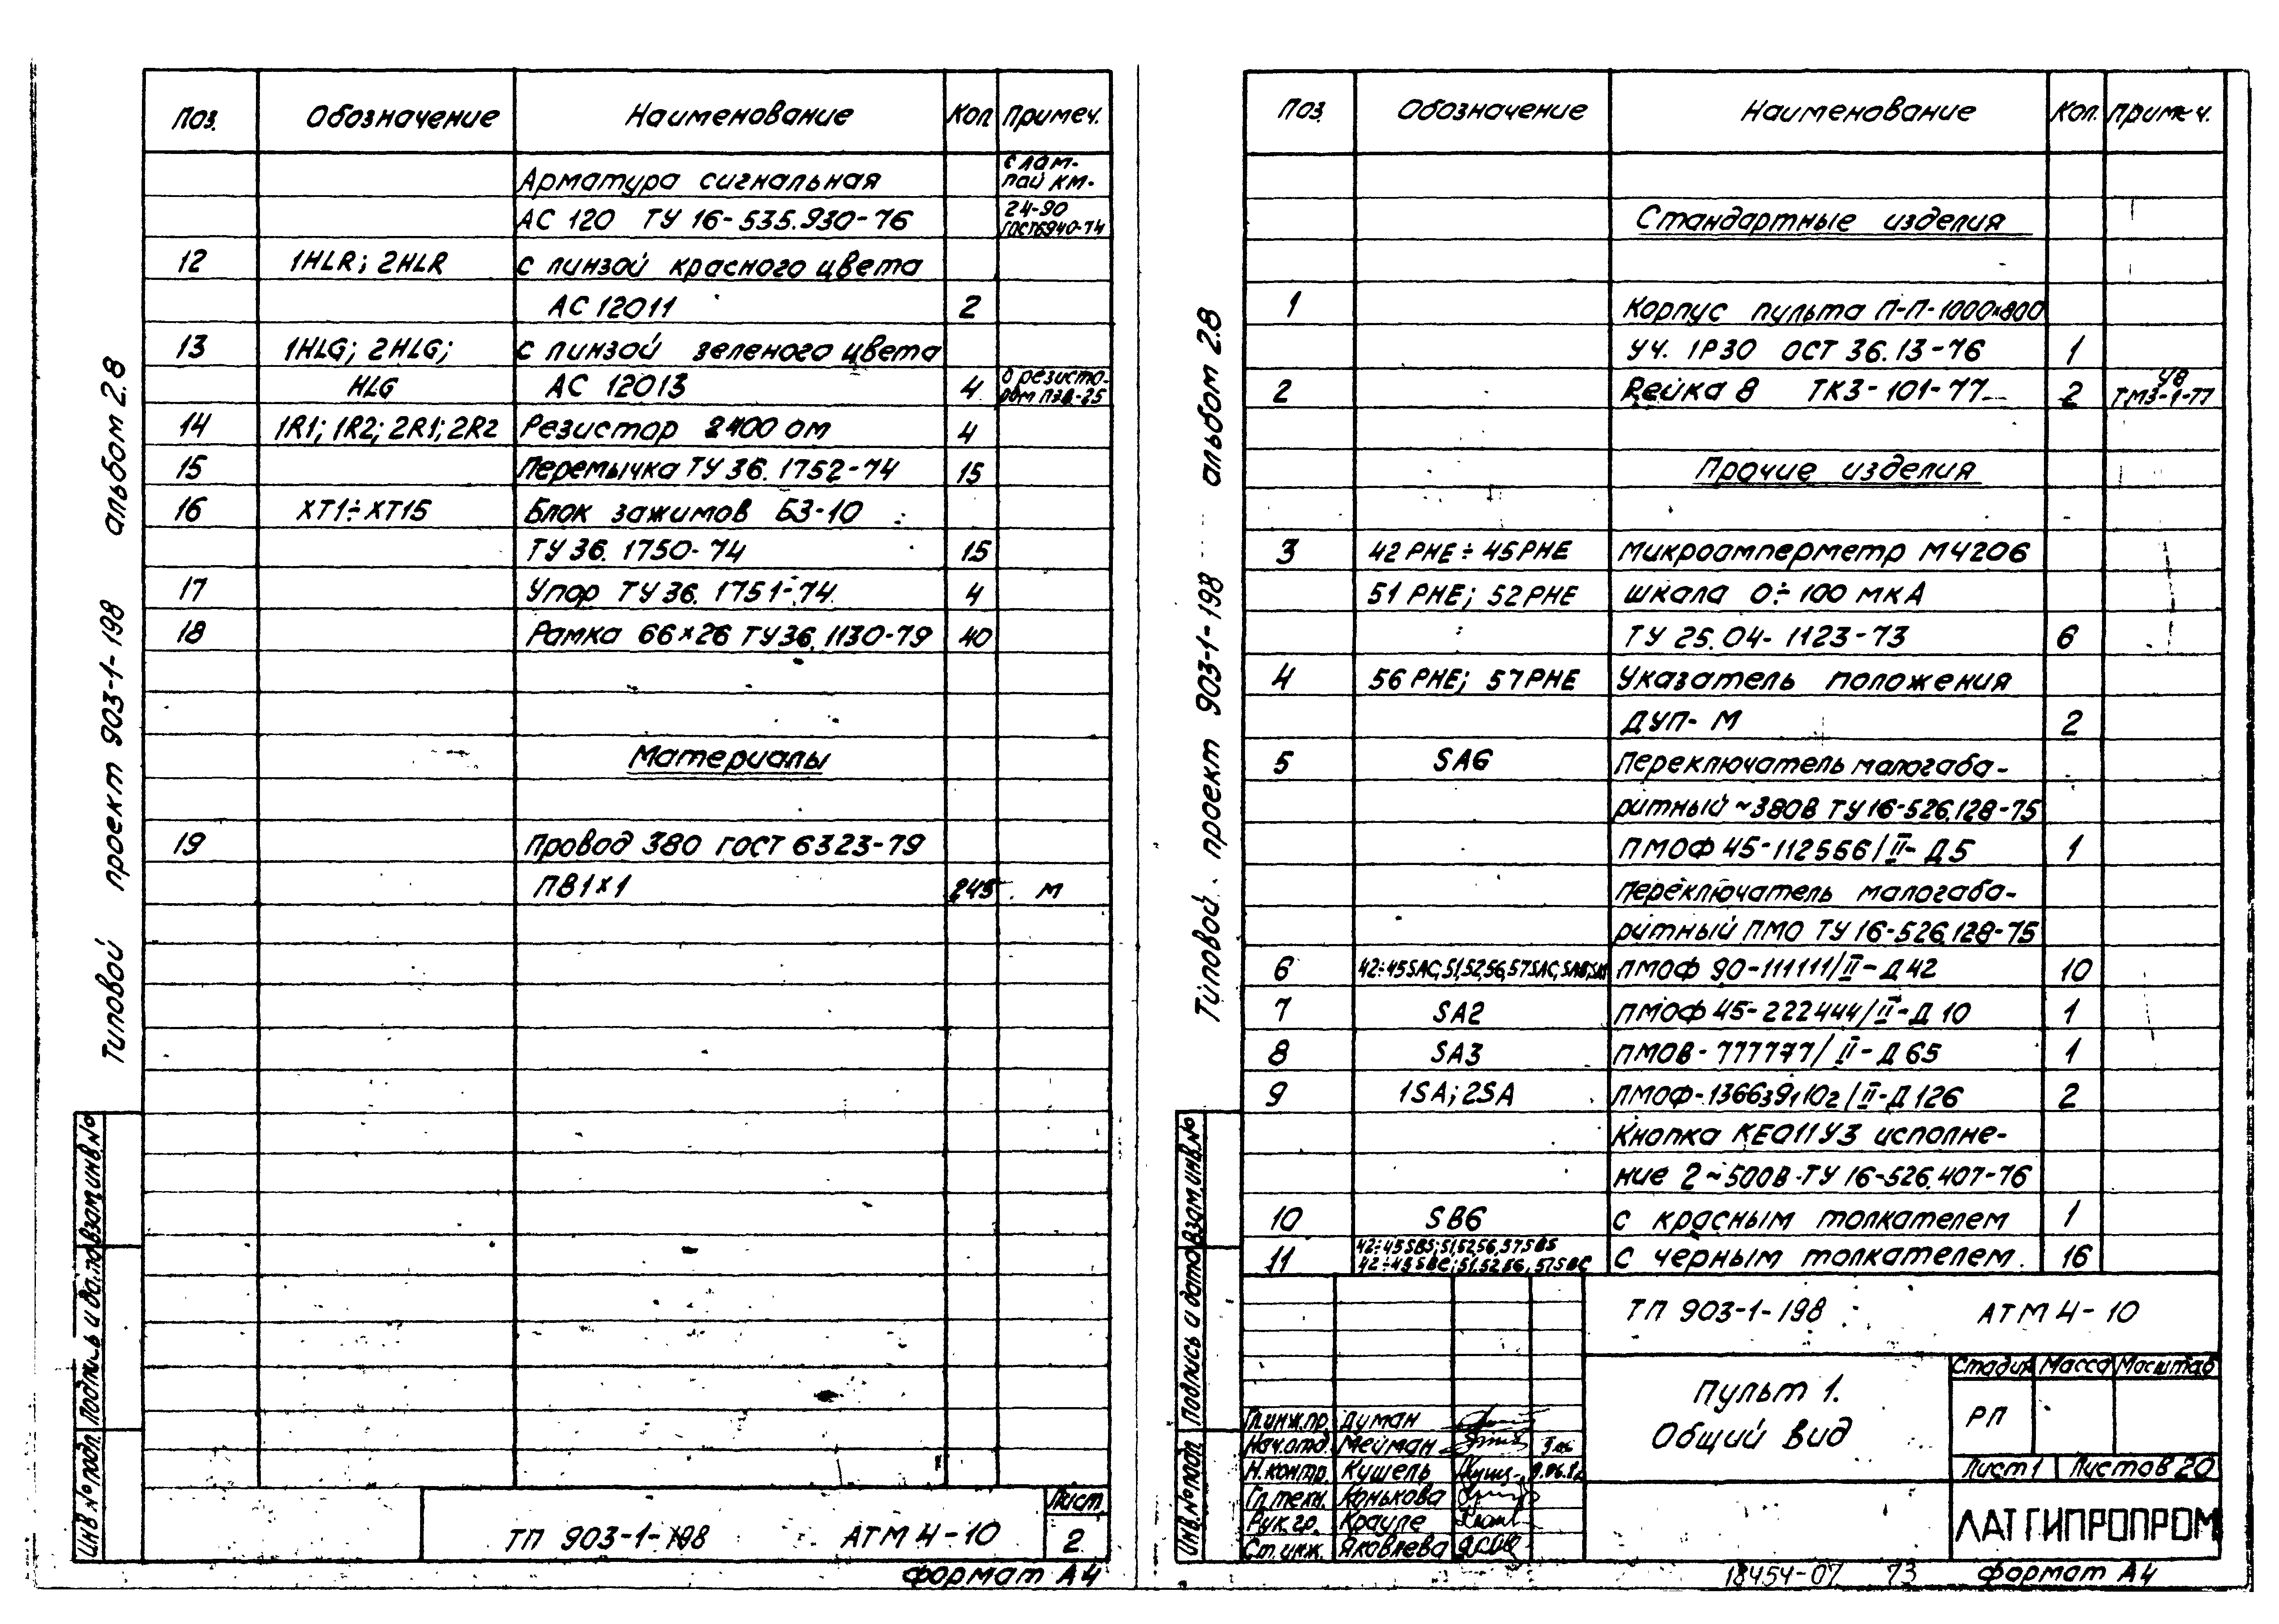 Поз. Обозначение Наименование Кол Примеч.
Арматура сигнальная с лам-
пой КМ-
АС 120 ТУ 16-535.930-76 24-90
ГОСТ6940-74
12 1HLR; 2HLR с линзой красного цвета
АС 12011 2
13 1HLG; 2HLG; с линзой зеленого цвета
HLG АС 12013 4 с резисто-
ром ПЭВ-25
14 1R1; 1R2; 2R1; 2R2 Резистор 2400 ом 4
15 Перемычка ТУ 36.1752-74 15
16 XT1÷XT15 Блок зажимов БЗ-10
ТУ 36.1750-74 15
17 Упор ТУ 36.1751-74 4
18 Рамка 66×26 ТУ 36.1130-79 40
Материалы
19 Провод 380 ГОСТ 6323-79
ПВ1×1 245 м
Типовой проект 903-1-198 альбом 2.8
Инв.№ подл. Подпись и да Взам.инв.№
ТП 903-1-198 АТМ 4-10 Лист
2
Формат А4
Поз. Обозначение Наименование Кол. Примеч.
Стандартные изделия
1 Корпус пульта П-П-1000×800
УЧ. 1Р30 ОСТ 36.13-76 1
2 Рейка 8 ТК3-101-77 2 ТМ3-1-77
Прочие изделия
3 42 PHE ÷ 45PHE Микроамперметр М4206
51 PHE; 52PHE шкала 0÷100 мкА
ТУ 25.04-1123-73 6
4 56 PHE; 57PHE Указатель положения
ДУП-М 2
5 SA6 Переключатель малогаба-
ритный ~380В ТУ 16-526.128-75
ПМОФ 45-112566/II-Д5 1
Переключатель малогаба-
ритный ПМО ТУ 16-526.128-75
6 42÷45SAC,51,52,56,57SAC, ПМОФ 90-111111/II-Д42 10
7 SA2 ПМОФ 45-222444/II-Д10 1
8 SA3 ПМОВ-777777/II-Д65 1
9 1SA; 2SA ПМОФ-136639,102/II-Д126 2
Кнопка КЕ011У3 исполне-
ние 2~500В ТУ 16-526.407-76
10 SB6 с красным толкателем 1
11 42÷45SBS;51,52,56,57SBS
42÷45SBC;51,52,56,57SBC с черным толкателем 16
Типовой проект 903-1-198 альбом 2.8
Инв.№ подл. Подпись и дата Взам.инв.№
ТП 903-1-198 АТМ 4-10
Пульт 1.
Общий вид
Стадия Масса Масштаб
РП
Лист 1 Листов 20
ЛАТГИПРОПРОМ
Гл.инж.пр. Думан
Нач.отд. Мейман
Н.контр. Кушель
Гл.техн. Конькова
Рук.гр. Крауле
Ст.инж. Яковлева
18454-07 73 Формат А4